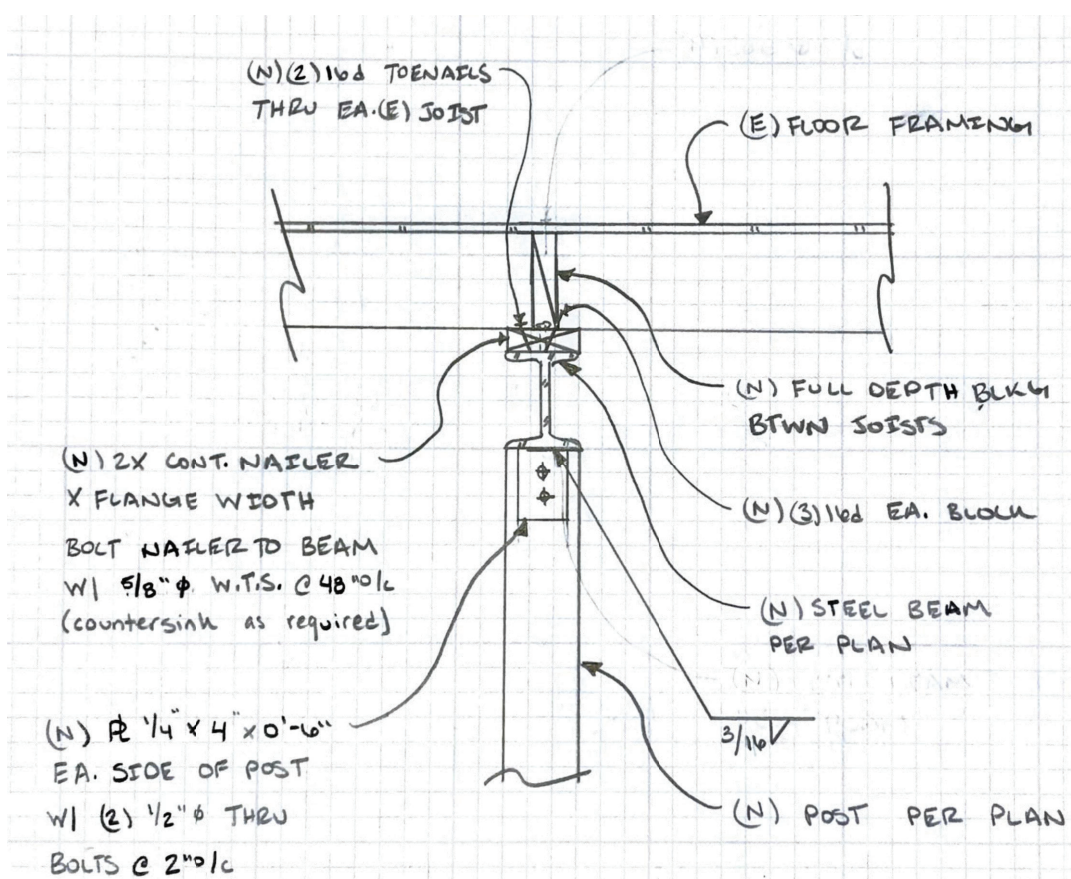 (N)(2)16d TOENAILS
THRU EA.(E) JOIST
(E) FLOOR FRAMING
(N) FULL DEPTH BLKG
BTWN JOISTS
(N) 2X CONT. NAILER
X FLANGE WIDTH
BOLT NAILER TO BEAM
W/ 5/8"φ W.T.S. @ 48"o/c
(countersink as required)
(N)(3)16d EA. BLOCK
(N) STEEL BEAM
PER PLAN
3/16
(N) PL 1/4" x 4" x 0'-6"
EA. SIDE OF POST
W/ (2) 1/2"φ THRU
BOLTS @ 2"o/c
(N) POST PER PLAN